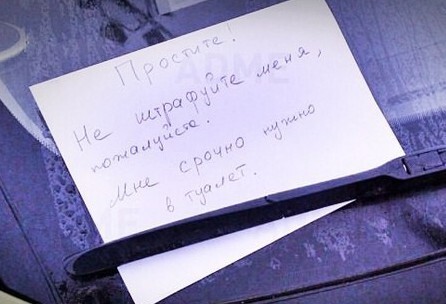 Простите!
Не штрафуйте меня,
пожалуйста.
Мне срочно нужно
в туалет.
ADME